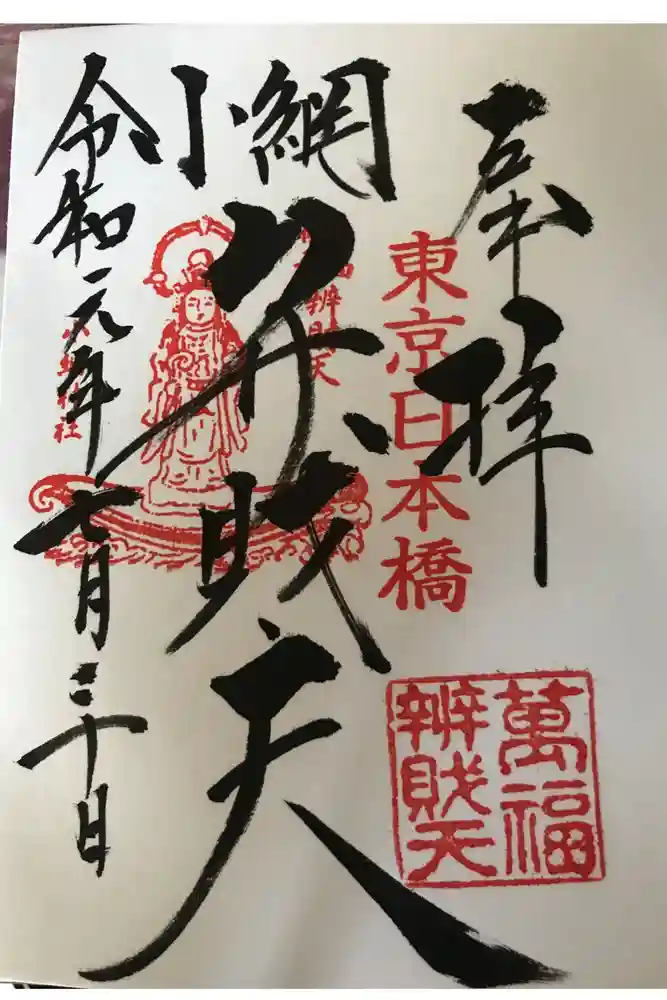 奉拝
東京日本橋
萬福
辨財天
小網
弁財天
辨財天
令和元年七月二十日
神社